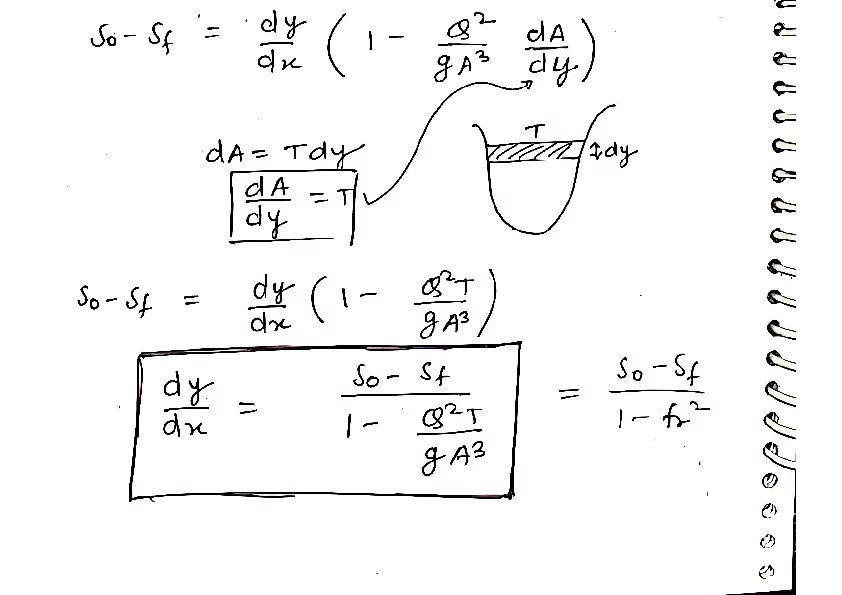 S₀ - S_f = dy/dx ( 1 - Q²/gA³ dA/dy )
T
dA = T dy
dy
dA/dy = T
S₀ - S_f = dy/dx ( 1 - Q²T/gA³ )
dy/dx = S₀ - S_f / 1 - Q²T/gA³ = S₀ - S_f / 1 - fr²